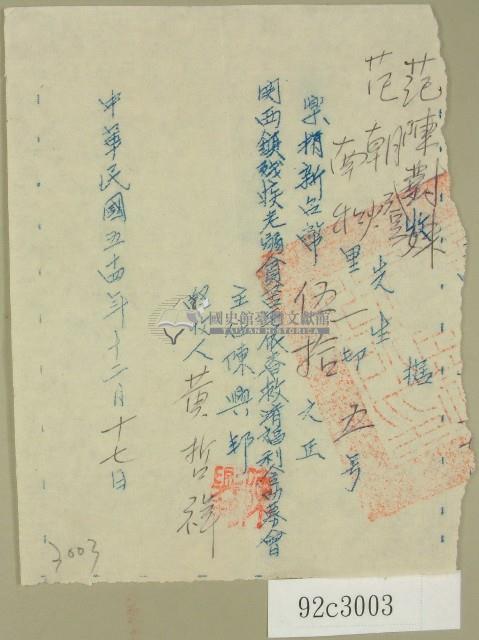 據
范陳對妹
范朝燈 先生
南和里一鄰五号
樂捐新台幣伍拾元正
関西鎮殘疾老弱貧苦無依春救濟福利金募會
主 陳興邦
經收人 黃哲祥
中華民國五十四年十二月十七日
3003
國史館臺灣文獻館
TAIWAN HISTORICA
92c3003